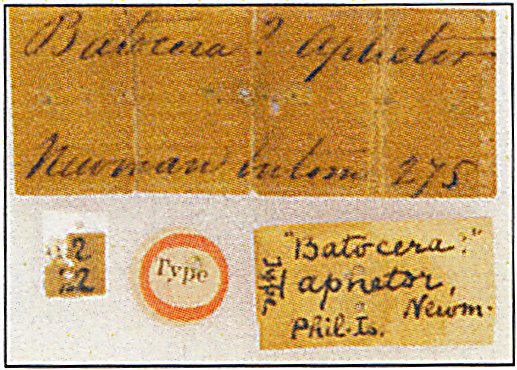 Batocera? Aphetor
Newman Entom 275
42
22
Type
"Batocera?"
aphetor,
Newm.
Phil. Is.
Type